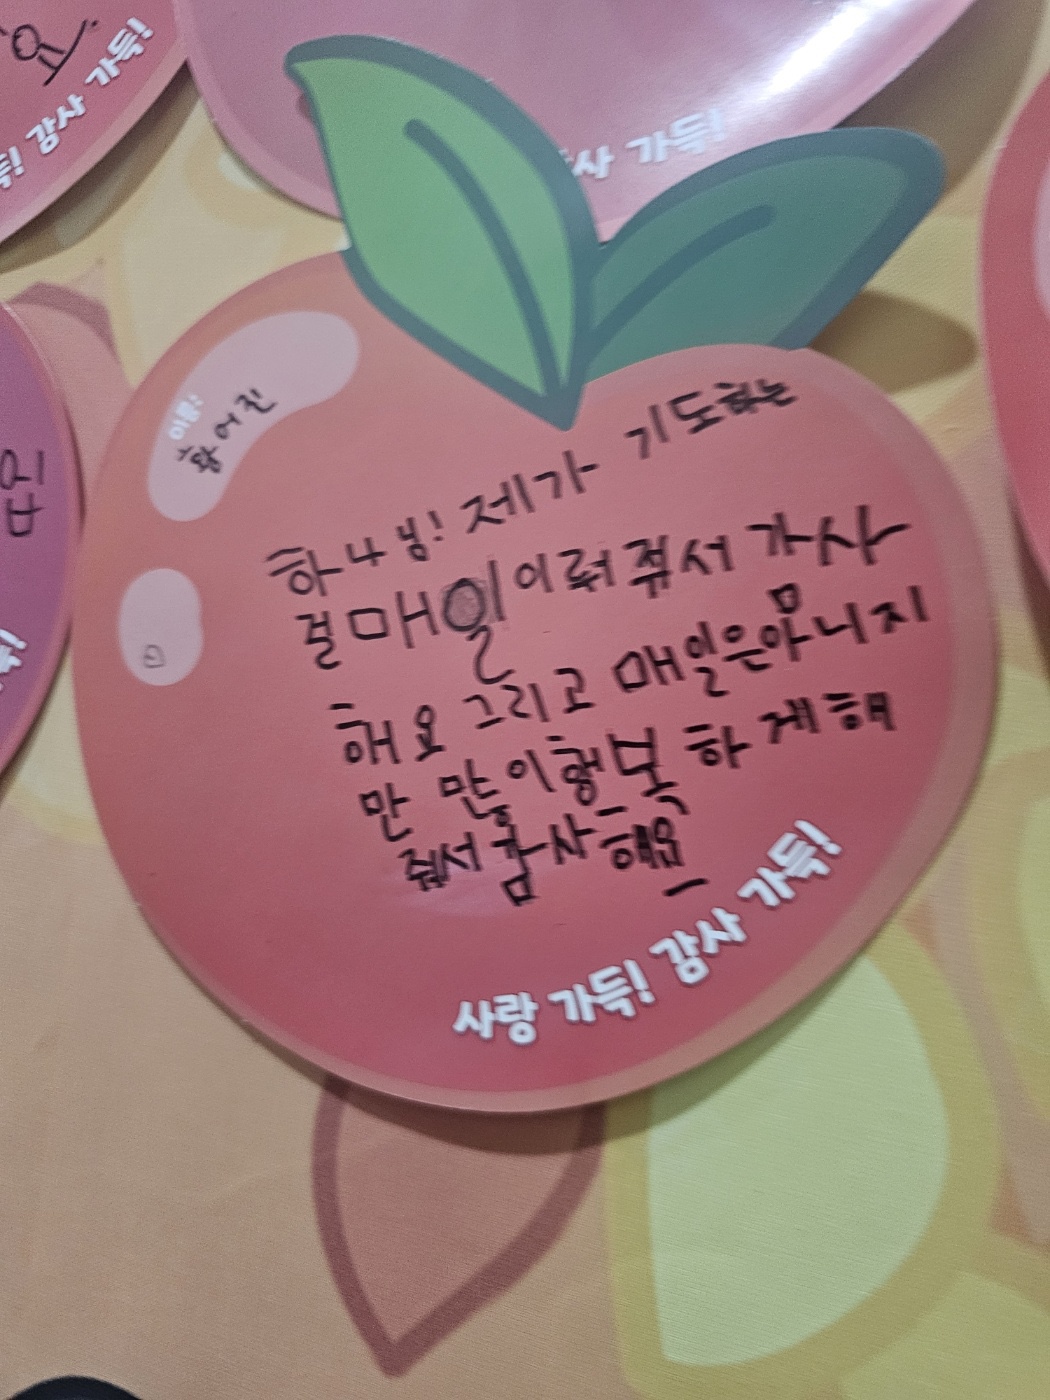 요.
감사 가득!
사 가득!
이름:
황어진
하나님! 제가 기도하는
걸 매일 이뤄줘서 감사
해요 그리고 매일은 아니지
만 많이 행복하게 해
줘서 감사해요
사랑 가득! 감사 가득!